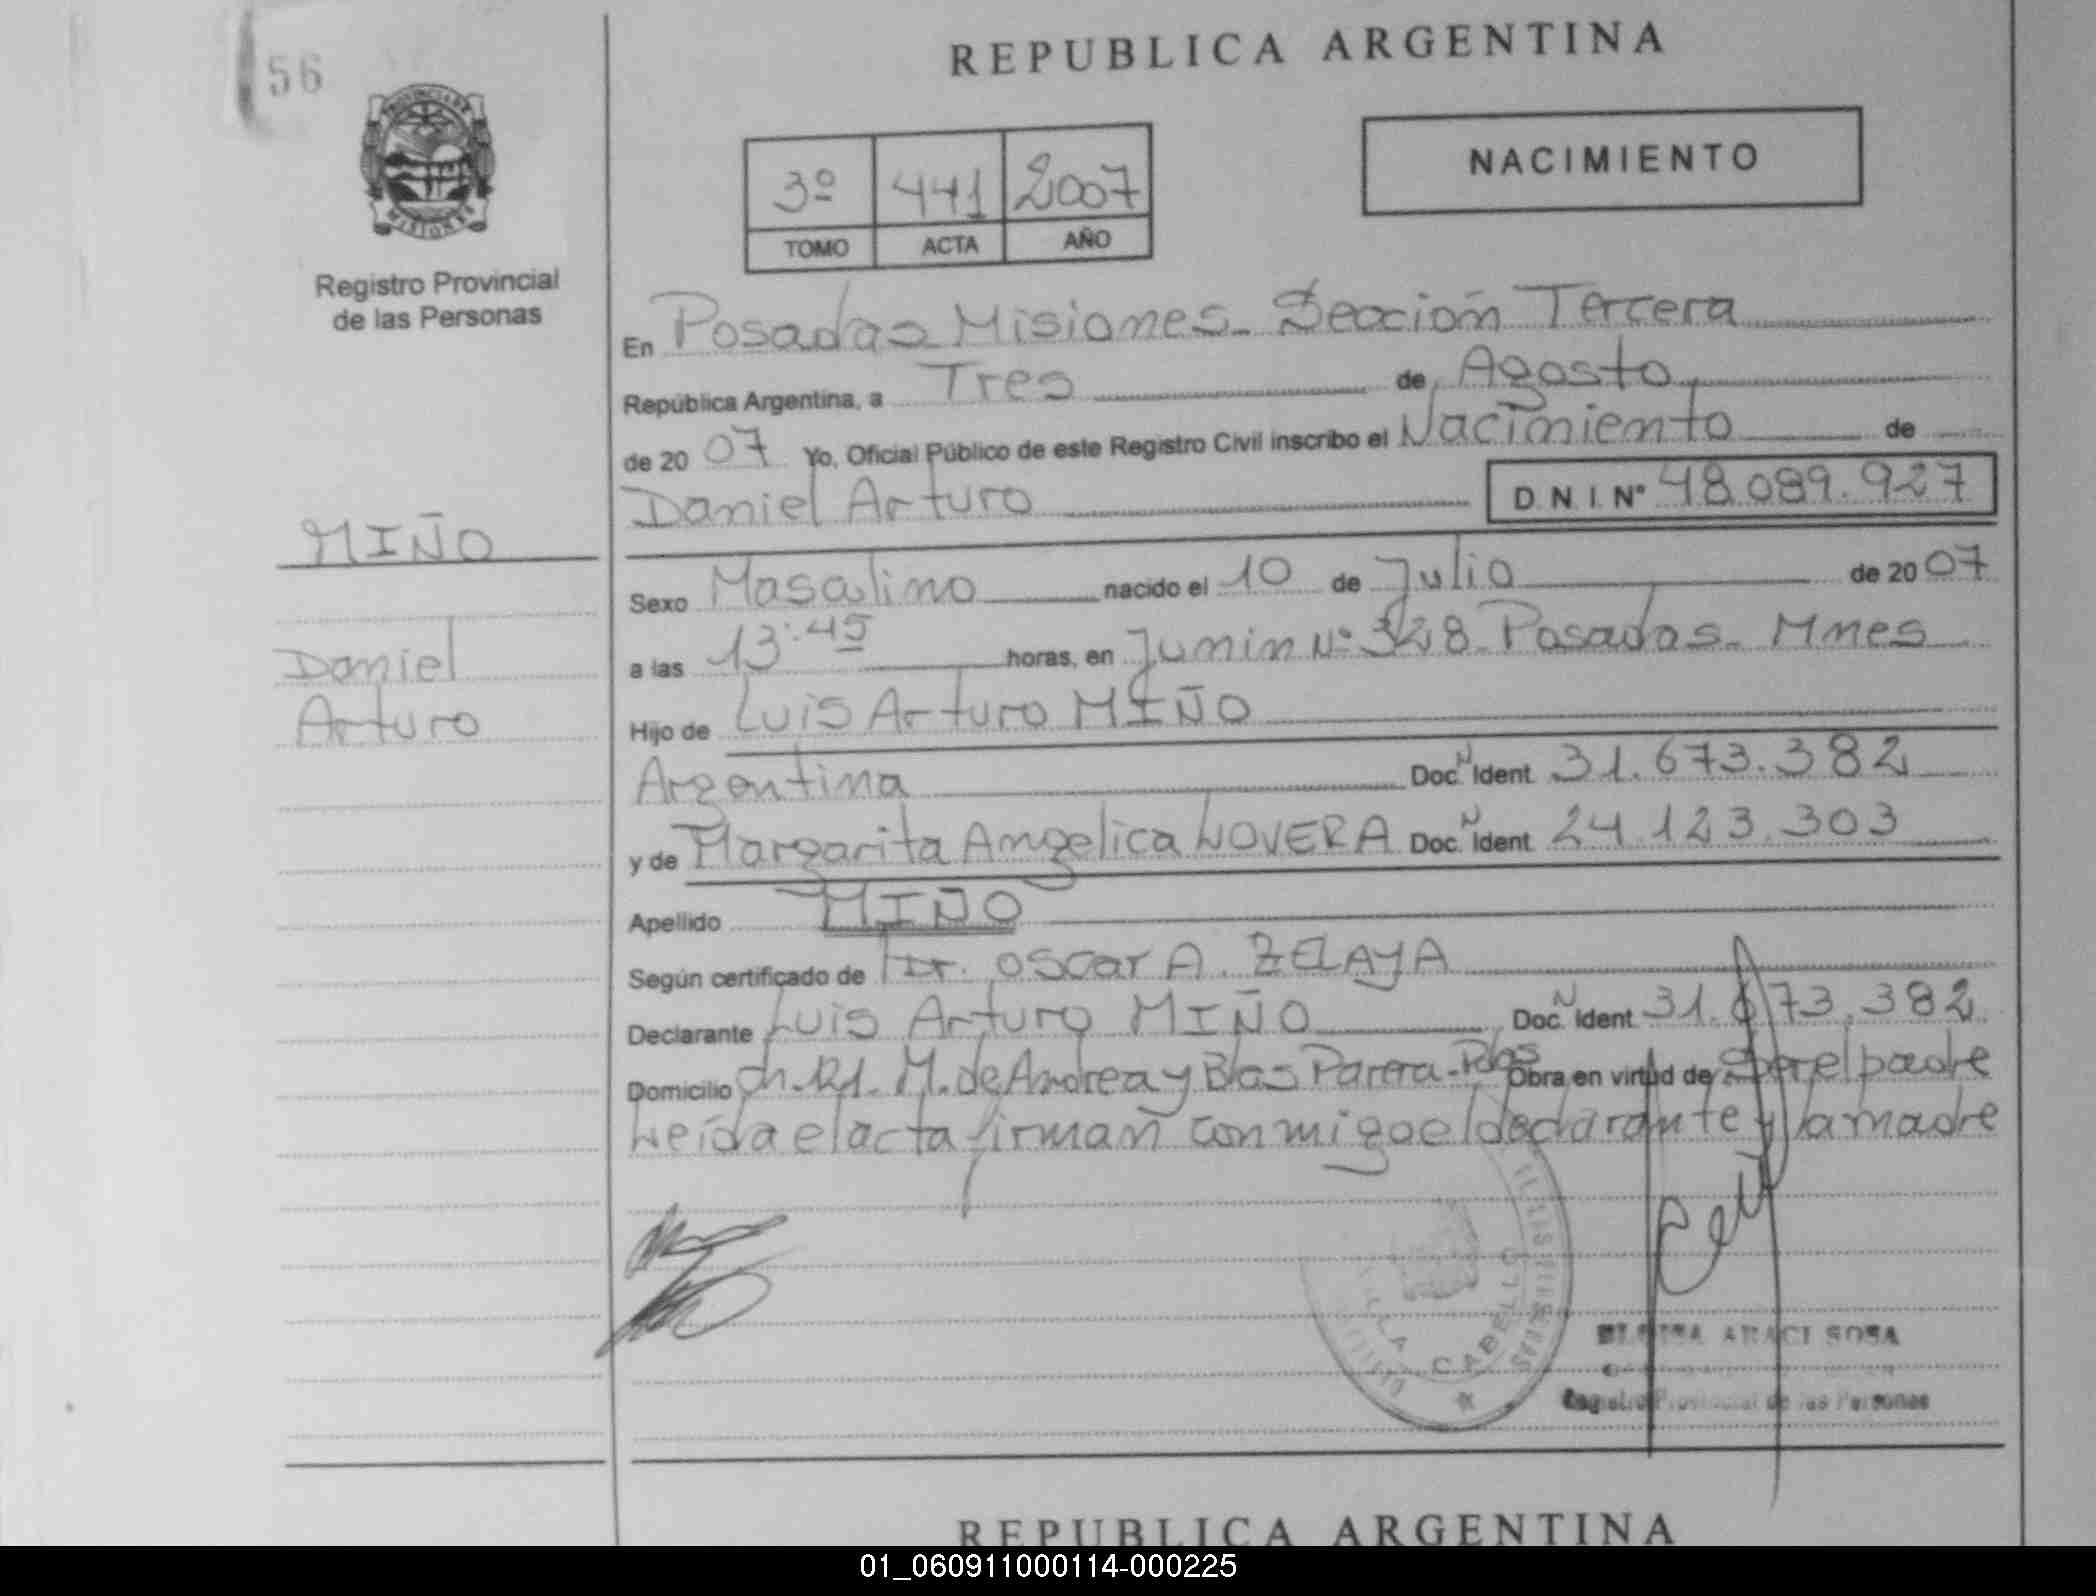 56
REPUBLICA ARGENTINA
PROVINCIA DE
MISIONES
Registro Provincial
de las Personas
3º 441 2007
TOMO ACTA AÑO
NACIMIENTO
En Posadas Misiones - Sección Tercera
República Argentina, a Tres de Agosto
de 20 07 Yo, Oficial Público de este Registro Civil inscribo el Nacimiento de
Daniel Arturo D.N.I. Nº 48.089.927
MIÑO
Daniel
Arturo
Sexo Masculino nacido el 10 de Julio de 20 07
a las 13:45 horas, en Junin Nº 328 Posadas - Mnes
Hijo de Luis Arturo MIÑO
Argentina Doc. N Ident. 31.673.382
y de Margarita Angelica LOVERA Doc. N Ident. 24.123.303
Apellido MIÑO
Según certificado de Dr. Oscar A. ZELAYA
Declarante Luis Arturo MIÑO Doc. N Ident. 31.673.382
Domicilio Ch. 121. M. de Andrea y Blas Parera - Pdas Obra en virtud de Ser el padre
Leída el acta firman conmigo el declarante y la madre
VILLA CABELLO
ARACI SOSA
Registro Provincial de las Personas
REPUBLICA ARGENTINA
01_060911000114-000225